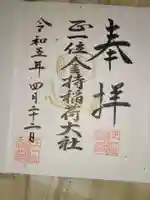 奉拝
正一位金持稲荷大社
令和五年四月二十二日